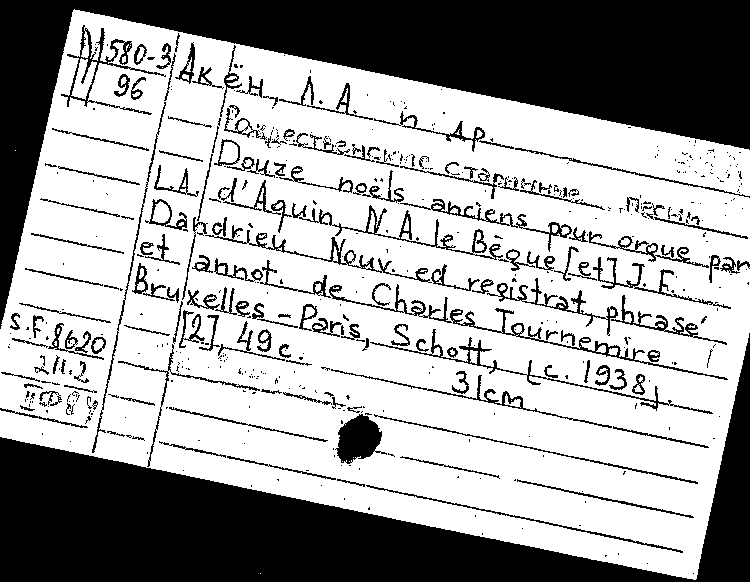 М 580-3
96
Акён, Л. А. и др.
Рождественские старинные песни
Douze noëls anciens pour orgue par
L.A. d'Aquin, N. A. le Bègue [et] J. F.
Dandrieu Nouv. ed registrat, phrasé
et annot. de Charles Tournemire.
Bruxelles - Paris, Schott, [c. 1938].
[2], 49 c. 31cm.
S.F. 8620
211.2